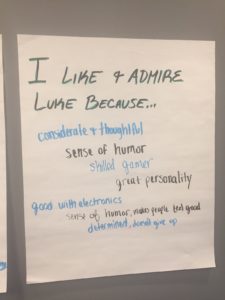 I LIKE & ADMIRE
LUKE BECAUSE...
considerate & thoughtful
sense of humor
skilled gamer
great personality
good with electronics
sense of humor, makes people feel good
determined, doesn't give up